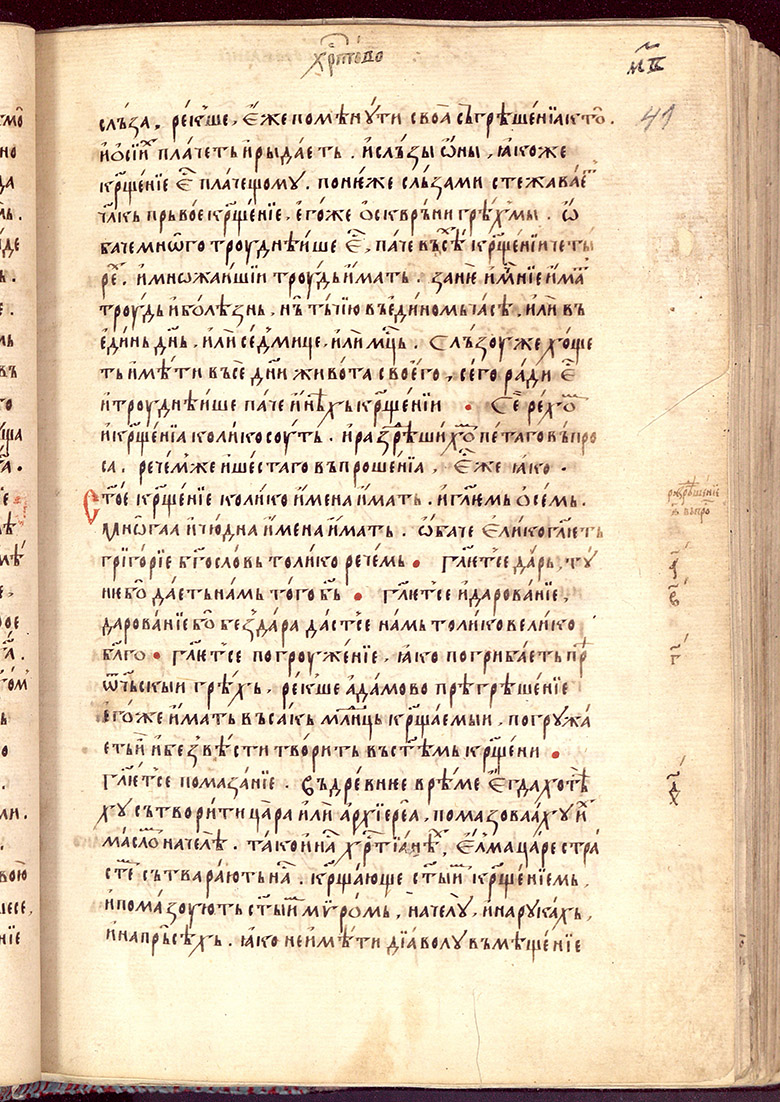 слъза. рек̾ше, еже поменꙋти своа съгрѣшенїа кто̑.
и ѡсїих̾ плачеть и рыдаеть. и слъзы ѡны, ꙗкоже
кр҃щенїе ес̑ плачещомꙋ. понюже слъзами стежаваѐ
чл҃кь прьвое кр҃щенїе, егоже ѡсквръни грѣхмы. ѡ
баче мнѡго троуднѣише ес̑, паче въсѣ̑ кр҃щенїи четы
ре̑. и мнѡжаишїи троудь имать. зане ин̑ние има̑
троудь и болѣзнь, нь̏ тъчїю въ единомь часѣ, или въ
единь дн҃ь, или седмище, или мц҃ь. Слъзоу же хоще
ть имѣти въсе дн҃и живота своего, сего ради ес̑
и троуднѣише паче инѣхь кр҃щенїи • Се̑ рехо̑м
и кр҃щенїа колико соуть. и разрѣшихо̑м петаго въпро
са. речем̾же и шестаго въпрошенїа, еже ꙗко.
Ст҃ое кр҃щенїе колико имена имать. и гл҃емь ѡсемь.
Мнѡгаа и чюдна имена имать. ѡбаче елико гл҃еть
григорїе бг҃ословь толико речемь • гл҃ет̾се дарь, тꙋ
не бо̑ даеть намь того бъ̑ • гл҃ет̾се и дарованїе,
дарованїе бо̑ без̾дара даст̾се намь толико велико
бл҃го • гл҃ет̾се погроуженїе, ꙗко погрибаеть пр҃
ѡч҃ьскыи грѣхь, рек̾ше адамово прѣгрѣшенїе
егоже имать въсакь мл҃нць кр҃щаемыи, погрꙋжа
етьи и без̾вѣсти творить въ ст҃ѣмь кр҃щени •
гл҃ет̾се помазанїе. Въ древнее врѣме егда хотѣ
хꙋ сътворити цара или архїереа, помазоваахꙋ и̑х
масло̑м на челѣ. тако и на̑ хр҃тїанѣ̑х, елма царе стра
сте̑м сътварають на̑. кр҃щающе ст҃ыи̑м кр҃щенїемь,
и помазоують ст҃ыи̑м мѵ̈ромь, на челꙋ, и на рꙋкахь,
и на прьсѣхь. ꙗко не имѣти дїаволꙋ въмѣщенїе
41
разрѣшенїе
ѕ҃ въпро̑
а҃
в҃
г҃
д҃